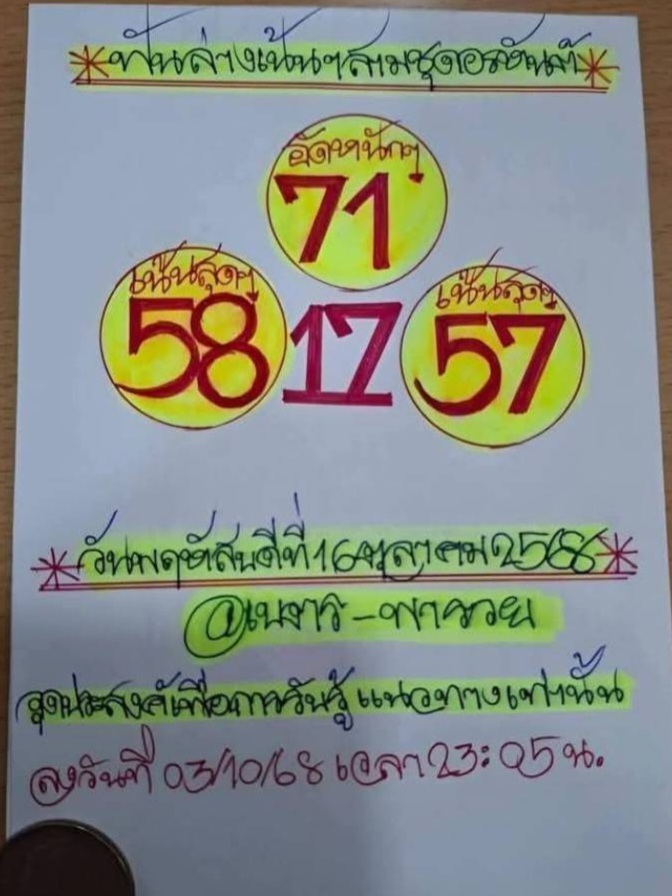 ฟันล่างเน้นๆสามชุดอรหันต์
อัดหนักๆ
71
เน้นสุดๆ
58
17
เน้นสุดๆ
57
วันพฤหัสบดีที่16ตุลาคม2568
@เนงาร-พารวย
จุดประสงค์เพื่อการรับรู้ แนวทางเท่านั้น
ลงวันที่ 03/10/68 เวลา 23:05 น.